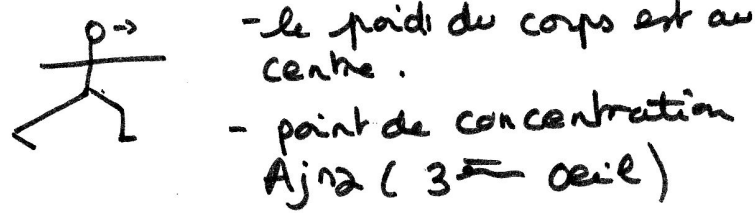 - le poids du corps est au
centre.
- point de concentration
Ajna ( 3ème oeil)